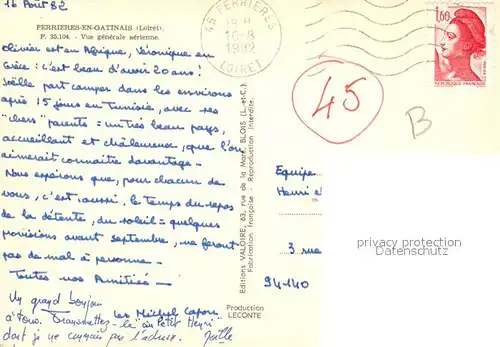 16 Août 82
FERRIERES-EN-GATINAIS (Loiret).
P. 35.104. - Vue générale aérienne.
Olivier est en Afrique, Véronique en
Grèce : c'est beau d'avoir 20 ans !
Joëlle part camper dans les environs
après 15 jours en Tunisie, avec ses
"chers" parents : un très beau pays,
accueillant et chaleureux, que l'on
aimerait connaître davantage -
Nous espérons que, pour chacun de
vous, c'est aussi le temps du repos
de la détente, du soleil = quelques
provisions avant septembre, ne feront
pas de mal à personne -
Toutes nos Amitiés -
Les Michel
Un grand bonjour
à tous. Transmettez-le "au Petit Henri"
dont je ne connais pas l'adresse. Joëlle
Editions VALOIRE, 63, rue de la Mare, BLOIS (L.-et-C.)
Fabrication Française - Reproduction Interdite.
Production
LECONTE
45 FERRIERES
16-8
1982
LOIRET
1,60
REPUBLIQUE FRANÇAISE
45
B
Equipe
Henri
3 rue
94-140
privacy protection
Datenschutz